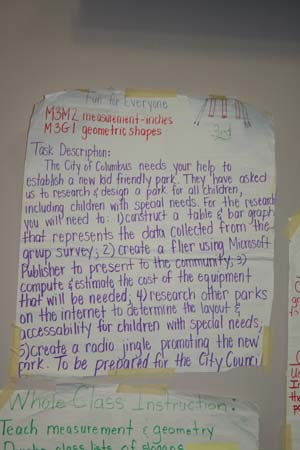 Fun for Everyone
M3M2 measurement-inches
M3G1 geometric shapes
3rd
Task Description:
The City of Columbus needs your help to
establish a new kid friendly park. They have asked
us to research & design a park for all children,
including children with special needs. For the research
you will need to: 1) construct a table & bar graph
that represents the data collected from the
group survey; 2) create a flier using Microsoft
Publisher to present to the community; 3)
compute & estimate the cost of the equipment
that will be needed; 4) research other parks
on the internet to determine the layout &
accessability for children with special needs;
5) create a radio jingle promoting the new
park. To be prepared for the City Council
Whole Class Instruction:
Teach measurement & geometry
class lists of slogans